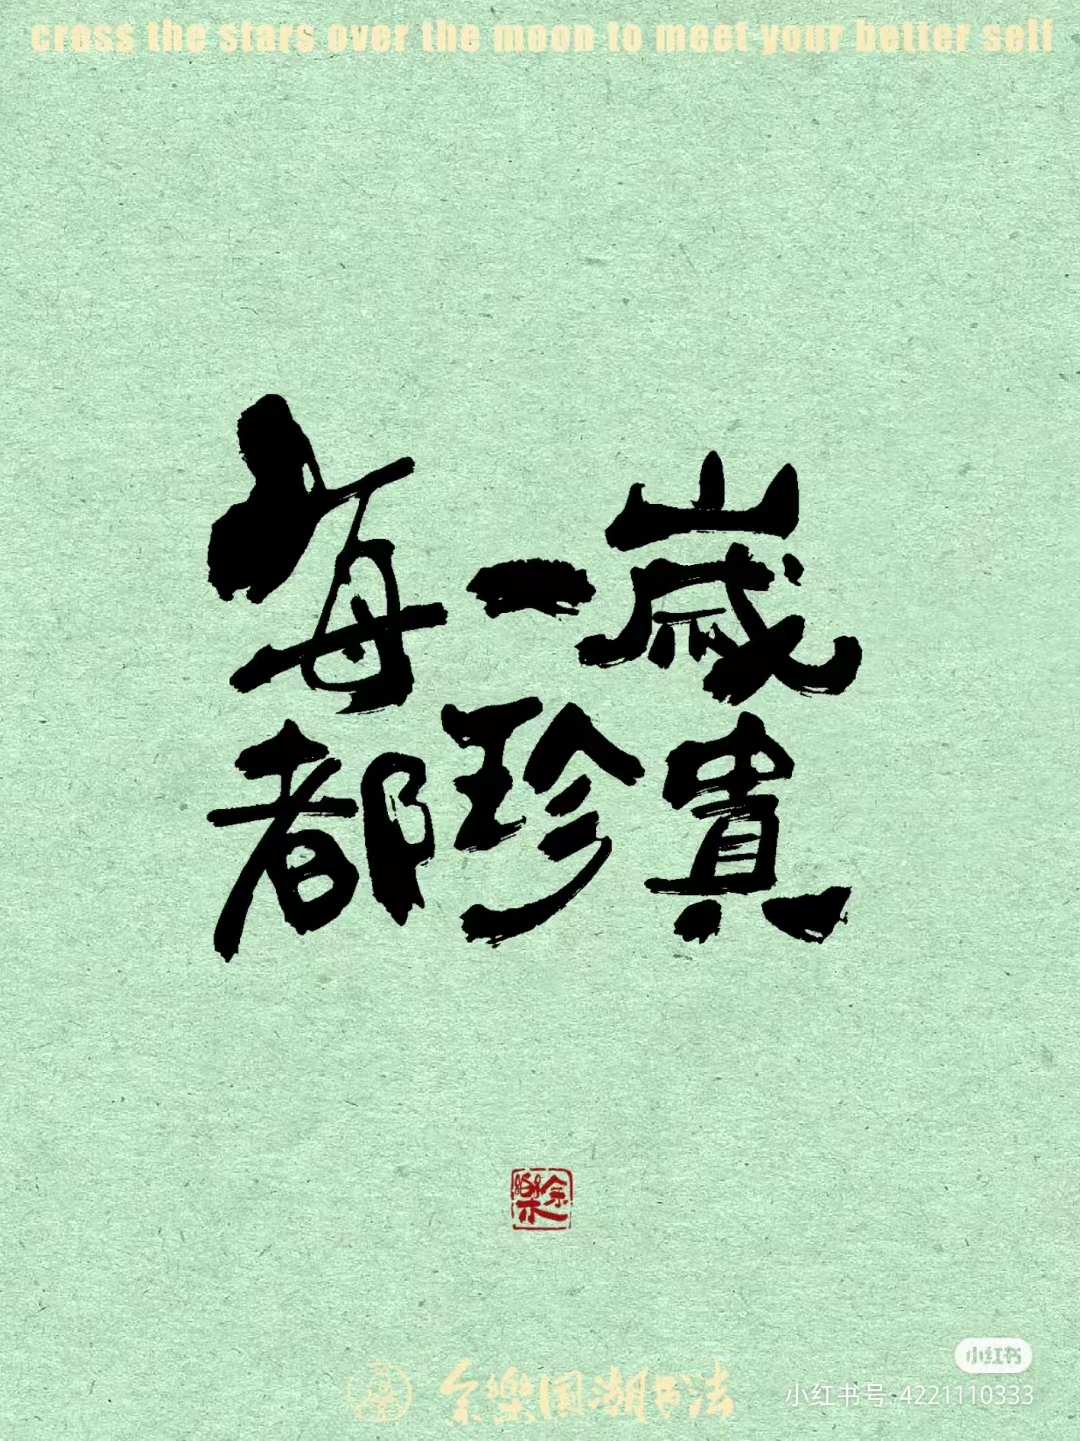 cross the stars over the moon to meet your better self
每一歲
都珍貴
余樂
余樂国潮书法
小红书
小红书号:4221110333